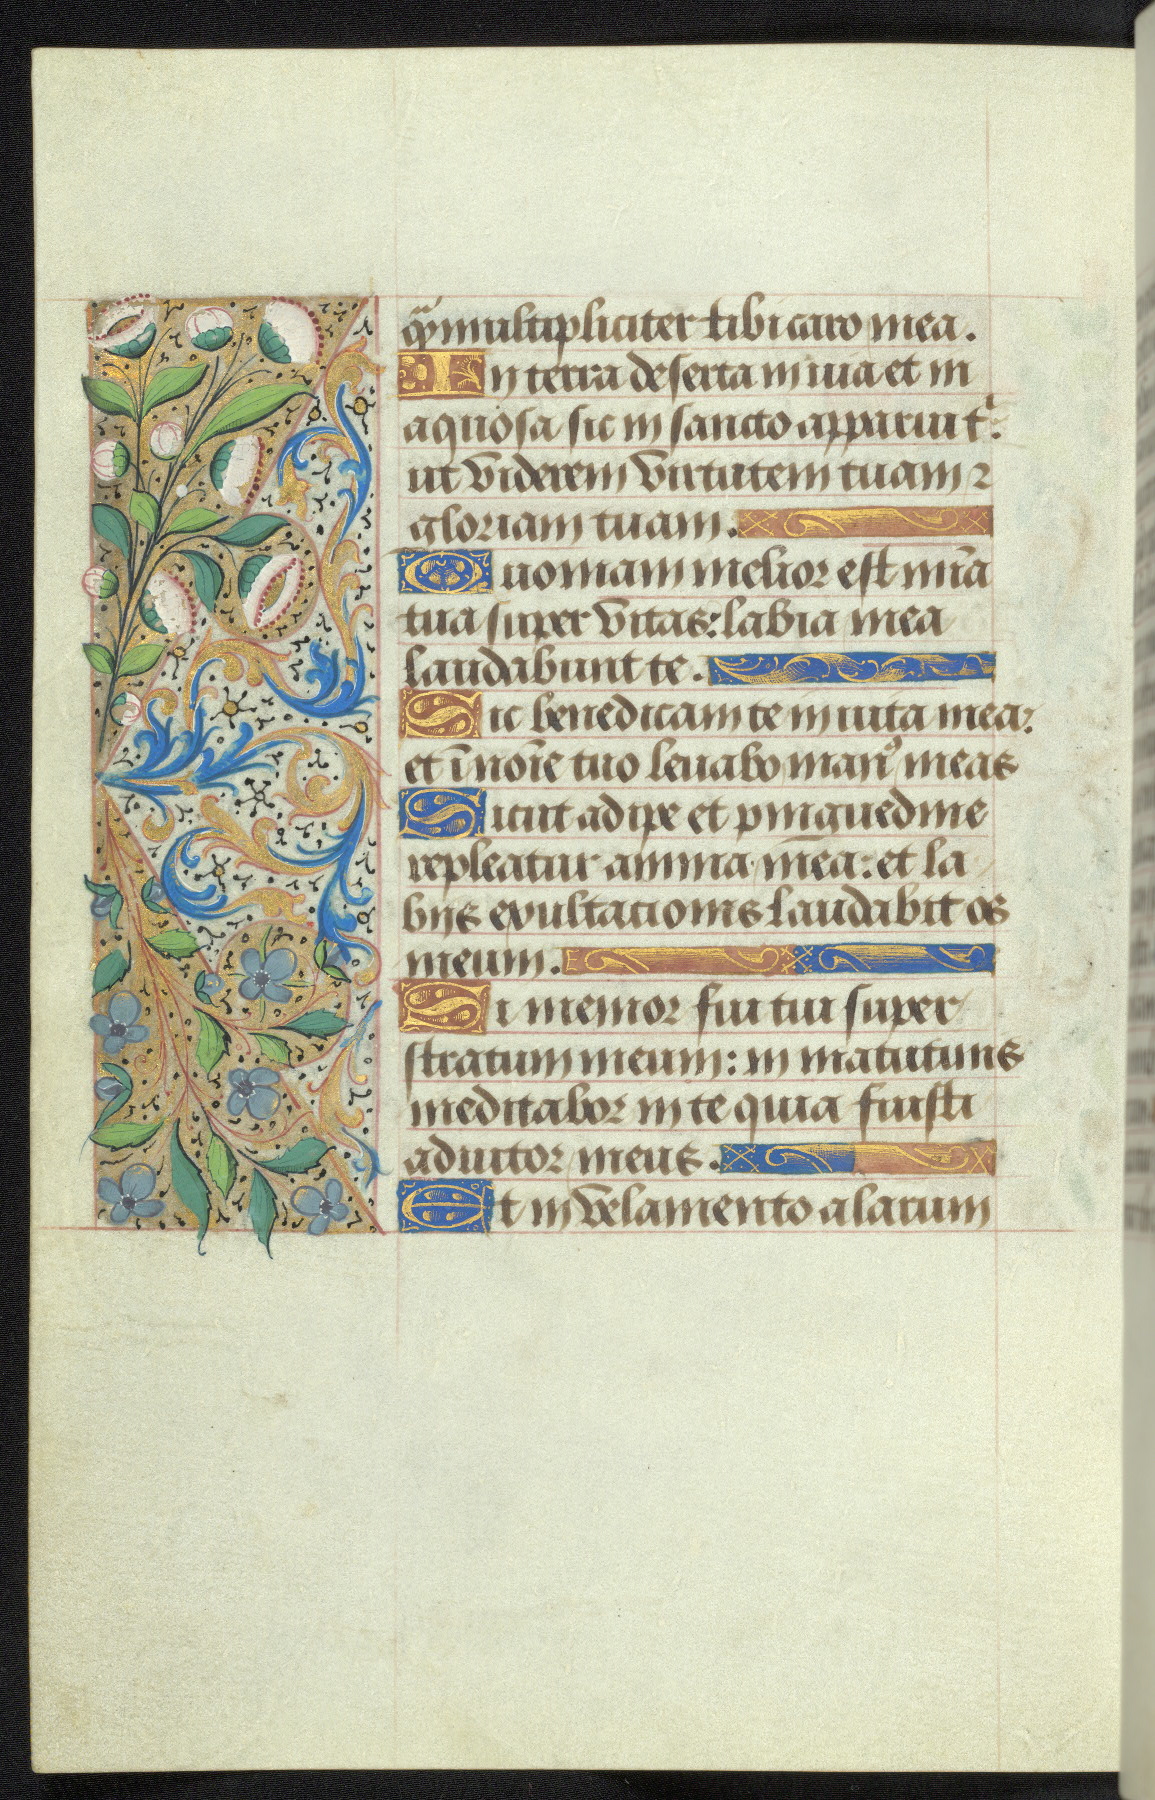 q̃ȝ multipliciter tibi caro mea.
In terra deserta in uia et in
aquosa sic in sancto apparui t̉:
ut viderem virtutem tuam ⁊
gloriam tuam.
Quoniam melior est mīa
tua super vitas: labia mea
laudabunt te.
Sic benedicam te in uita mea:
et ī noīe tuo leuabo manꝰ meas
Sicut adipe et pinguedine
repleatur anima mea: et la
bijs exultationis laudabit os
meum.
Si memor fui tui super
stratum meum: in matutinis
meditabor in te quia fuisti
adiutor meus.
Et in velamento alarum